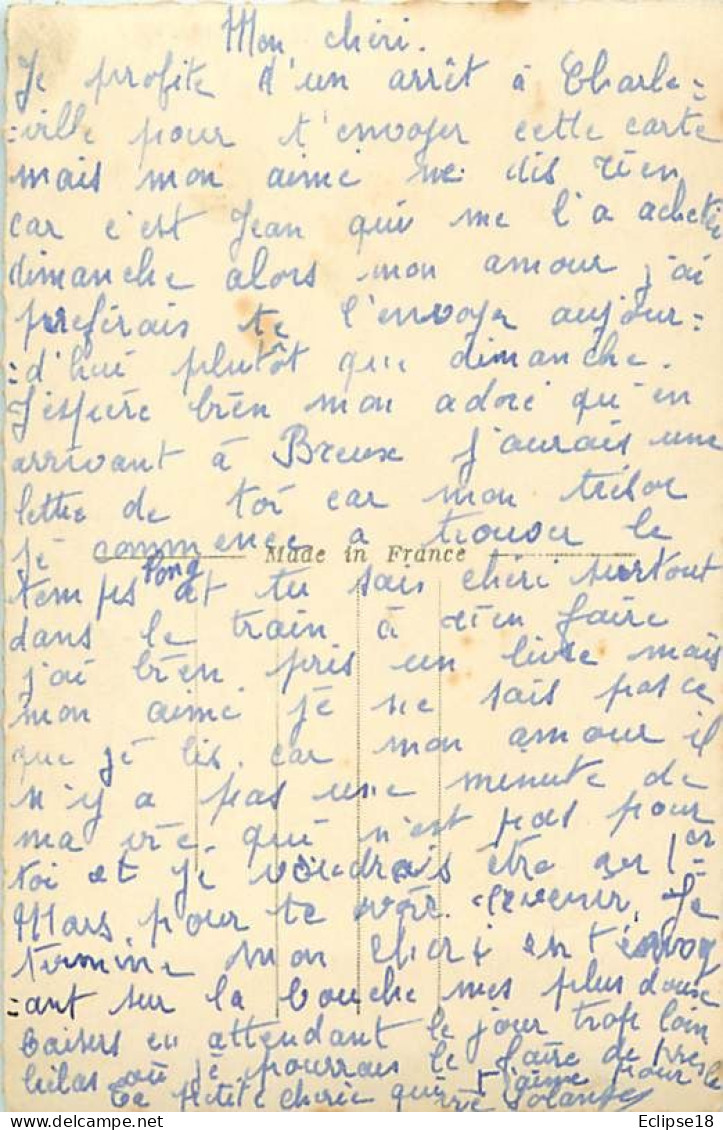 Mon chéri.
Je profite d'un arrêt à Charle=
=ville pour t'envoyer cette carte
mais mon aimé ne dis rien
car c'est Jean qui me l'a acheté
dimanche alors mon amour j'ai
preferais te l'envoyer aujour=
=d'hui plutôt que dimanche.
J'espère bien mon adoré qu'en
arrivant à Breux j'aurais une
lettre de toi car mon trésor
je commence a trouver le
Made in France
temps long et tu sais chéri surtout
dans le train à rien faire
j'ai bien pris un livre mais
mon aimé je ne sais pas ce
que je lis. car mon amour il
n'y a pas une minute de
ma vie qui n'est pas pour
toi et je voudrais être au 1er
Mars pour te voir revenir. Je
termine mon chéri en t'envoy
=ant sur la bouche mes plus doux
baisers en attendant le jour trop loin
hélas où je pourrais le faire de près
Ta petite chérie qui t'aime pour la
vie Solange
Eclipse18